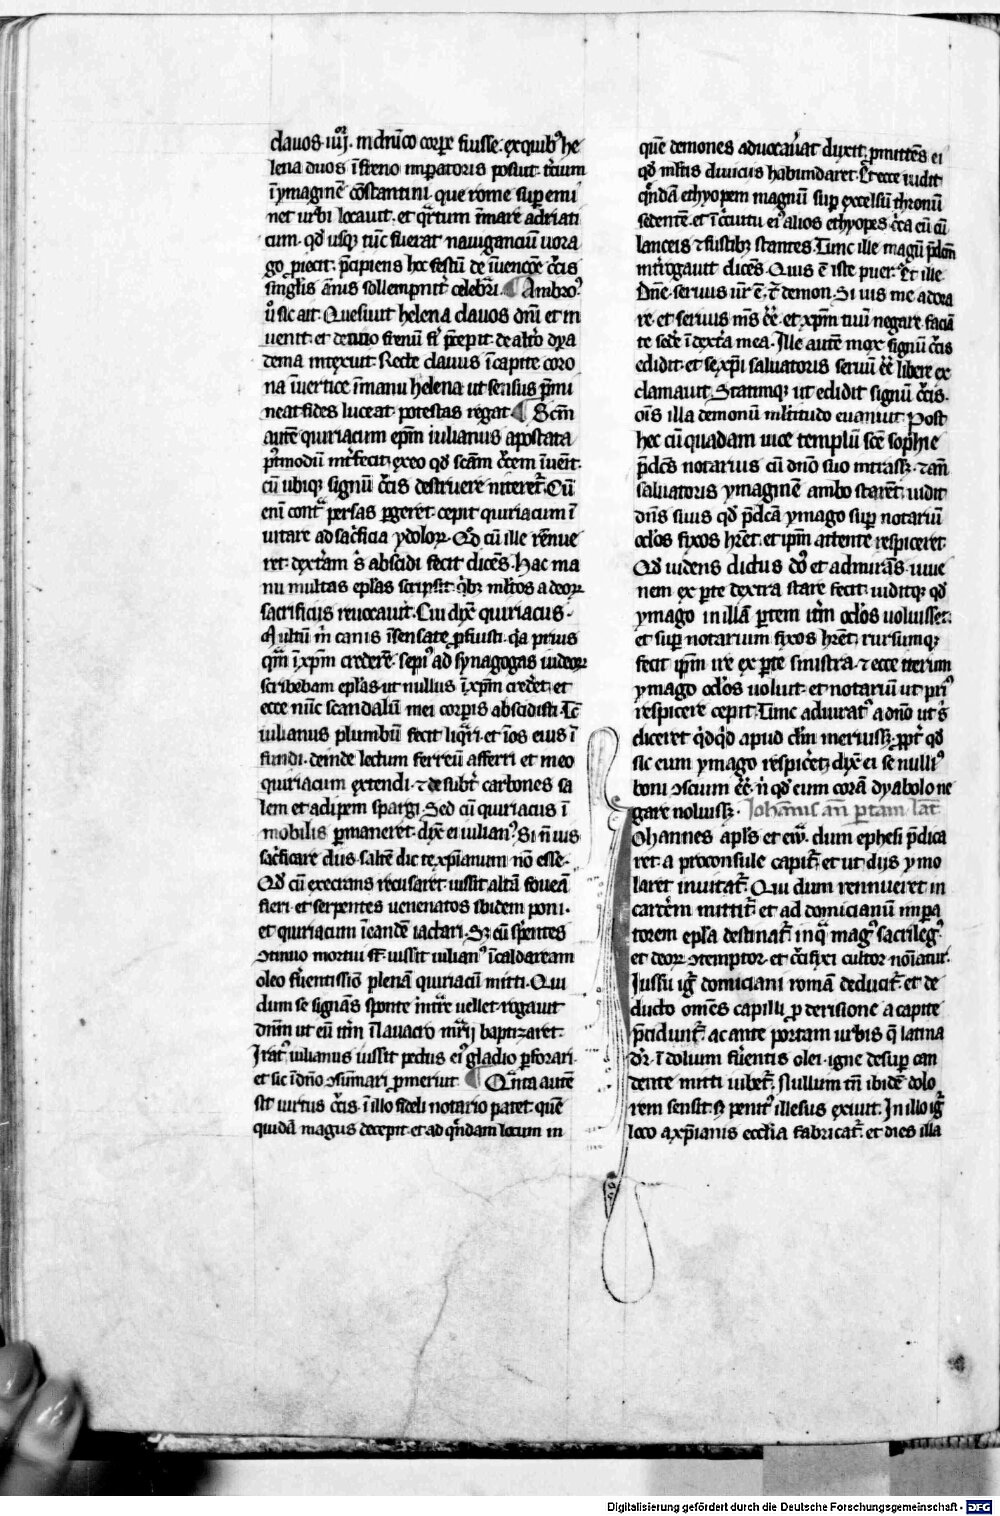 clauos·iiij· in dn̄ico corꝑe fuisse·ex quibꝰ he
lena duos ī freno imꝑatoris posuit· t̓cium
ī ymaginē cōstantini· que rome suꝑ emi
net urbi locauit· et qᷓrtum ī mare adriati
cum· qd̓ usqꝫ tūc fuerat nauiganciū uora
go ꝓiecit· p̄cipiens hoc festū de īuencōe c̓cis
singlis ānis sollempnit̓ celebri· Ambroꝰ
u̓ sic ait· Quesiuit helena clauos dn̄i et in
uenit· et de uno frenū fi̓ p̄cepit· de alt̓o dya
dema intexuit· Recte clauus ī capite coro
na ī uertice ī manu helena· ut sensus p̄mi
neat fides luceat· potestas regat· Scm̄
autē quiriacum ep̄m iulianus apostata
pꝰtmodū int̓fecit· ex eo qd̓ scām c̓cem īuēit·
cū ubiqꝫ signū c̓cis destruere niteret᷑· Cū
eni contᷓ persas ꝑgeret· cepit quiriacum ī
uitare ad sac̓ficia ydoloꝝ· Qd̓ cū ille rēnue
ret· dext̓am s̓ abscidi fecit dicēs· Hac ma
nu multas ep̄las scripsit· qͥbꝫ ml̓tos a deoꝝ
sacrificiis reuocauit· Cui dix̄ quiriacus·
Multū m̓ canis īsensate ꝓfuisti· qͣ prius
qᷓm ī xp̄m credere̅· sepiꝰ ad synagogas iudeoꝝ
scribebam ep̄las ut nullus ī xp̄m cred̓et· et
ecce nūc scandalū mei corꝑis abscidisti· Tc̄
iulianus plumbū fecit liqͣri· et ī os eius ī
fundi· deinde lectum ferreū afferri et in eo
quiriacum extendi· ⁊ de subt̓ carbones sa
lem et adipem spargi· Sed cū quiriacus ī
mobilis ꝑmaneret· dix̄ ei iulianꝰ· Si n̄ uis
sac̓ficare diis· saltē dic te xp̄ianum nō esse·
Qd̓ cū execrans recusaret· iussit altā foueā
fieri· et serpentes uenenatos ibidem poni·
et quiriacum ī eandē iactari· Sꝫ cū sp̓entes
ꝯtinuo mortui st̄· iussit iulianꝰ ī caldaream
oleo fu̓entissiō plenā quiriacū mitti· Qui
dum se signās sponte int̓re uellet· rogauit
dnm̄ ut eū itm̄ ī lauacro mr̄ij baptizaret·
Iratꝰ iulianus iussit pectus eiꝰ gladio ꝑforari·
et sic ī dn̄o ꝯsūmari ꝓmeruit· Qͣnta autē
sit uirtus c̓cis· ī illo fideli notario patet· quē
quidā magus decepit· et ad qᷓndam locum in
quē demones aduocau̓at duxit· ꝓmittēs ei
qd̓ ml̓tis diuiciis habundaret· Et ecce uidit
qᷓndā ethyopem magnū suꝑ excelsū thronū
sedentē· et ī c̓cuitu eiꝰ alios ethyopes c̓ca eū cū
lanceis ⁊ fustibꝫ stantes· Tunc ille magū p̄dc̄m
int̓rogauit dicēs· Quis ē iste puer· Et ille
Dn̄e· seruus ur̄ ē· tc̄ demon· Si uis me adora
re· et seruus m̄s ēē· et xp̄m tuū negare· faciā
te sed̓e ī dext̓a mea· Ille autē mox signū c̓cis
edidit· et se xp̄i saluatoris seruū ēē libere ex
clamauit· Statimqꝫ ut edidit signū c̓cis·
ois̄ illa demonū ml̓titudo euanuit· Post
hec cū quadam uice templū sc̄e sophie
p̄dc̄s notarius cū dn̄o suo intrassꝫ· ⁊ añ
saluatoris ymaginē ambo starent· uidit
dn̄s suus qd̓ p̄dc̄a ymago suꝑ notariū
oc̓los fixos hr̄et· et ip̄m attente respiceret·
Qd̓ uidens dictus do̓ et admirās· iuue
nem ex ꝑte dextra stare fecit· uiditqꝫ qd̓
ymago in illā ꝑtem itm̄ oc̓los uoluisset·
et suꝑ notarium fixos hr̄et· rursumqꝫ
fecit ip̄m ire ex ꝑte sinistra· ⁊ ecce iterum
ymago oc̓los uoluit· et notariū ut priꝰ
respicere cepit· Tunc adiuratꝰ a dn̄o ut s̓
diceret qͥdqͥd apud dm̄ meruissꝫ· ꝓpt̓ qd̓
sic eum ymago respic̓et· dix̄ ei se nulliꝰ
boni ꝯscium ēē· n̓ qd̓ eum corā dyabolo ne
gare noluissꝫ· Iohannis an̄ portam lat̄
Iohannes apl̄s et ew̄· dum ephesi p̄dica
ret· a proconsule capit᷑· et ut diis ymo
laret inuitat᷑· Qui dum rennueret in
carc̓em mittit᷑· et ad domicianū imꝑa
torem epl̄a destinat᷑· in qͣ magꝰ sacrilegꝰ
et deoꝝ ꝯtemptor· et c̓cifixi cultor noīatur·
Iussu ig᷑ domiciani romā deducit᷑· et de
ducto omēs capilli ꝓ derisione a capite
p̄cidunt᷑· ac ante portam urbis q̄ latina
dr̄· ī dolium fu̓entis olei· igne desuꝑ can
dente mitti iubet᷑· Nullum tn̄ ibidē dolo
rem sensit· sꝫ penitꝰ illesus exiuit· In illo ig᷑
loco a xp̄ianis ecclīa fabricat᷑· et dies illa
Digitalisierung gefördert durch die Deutsche Forschungsgemeinschaft - DFG